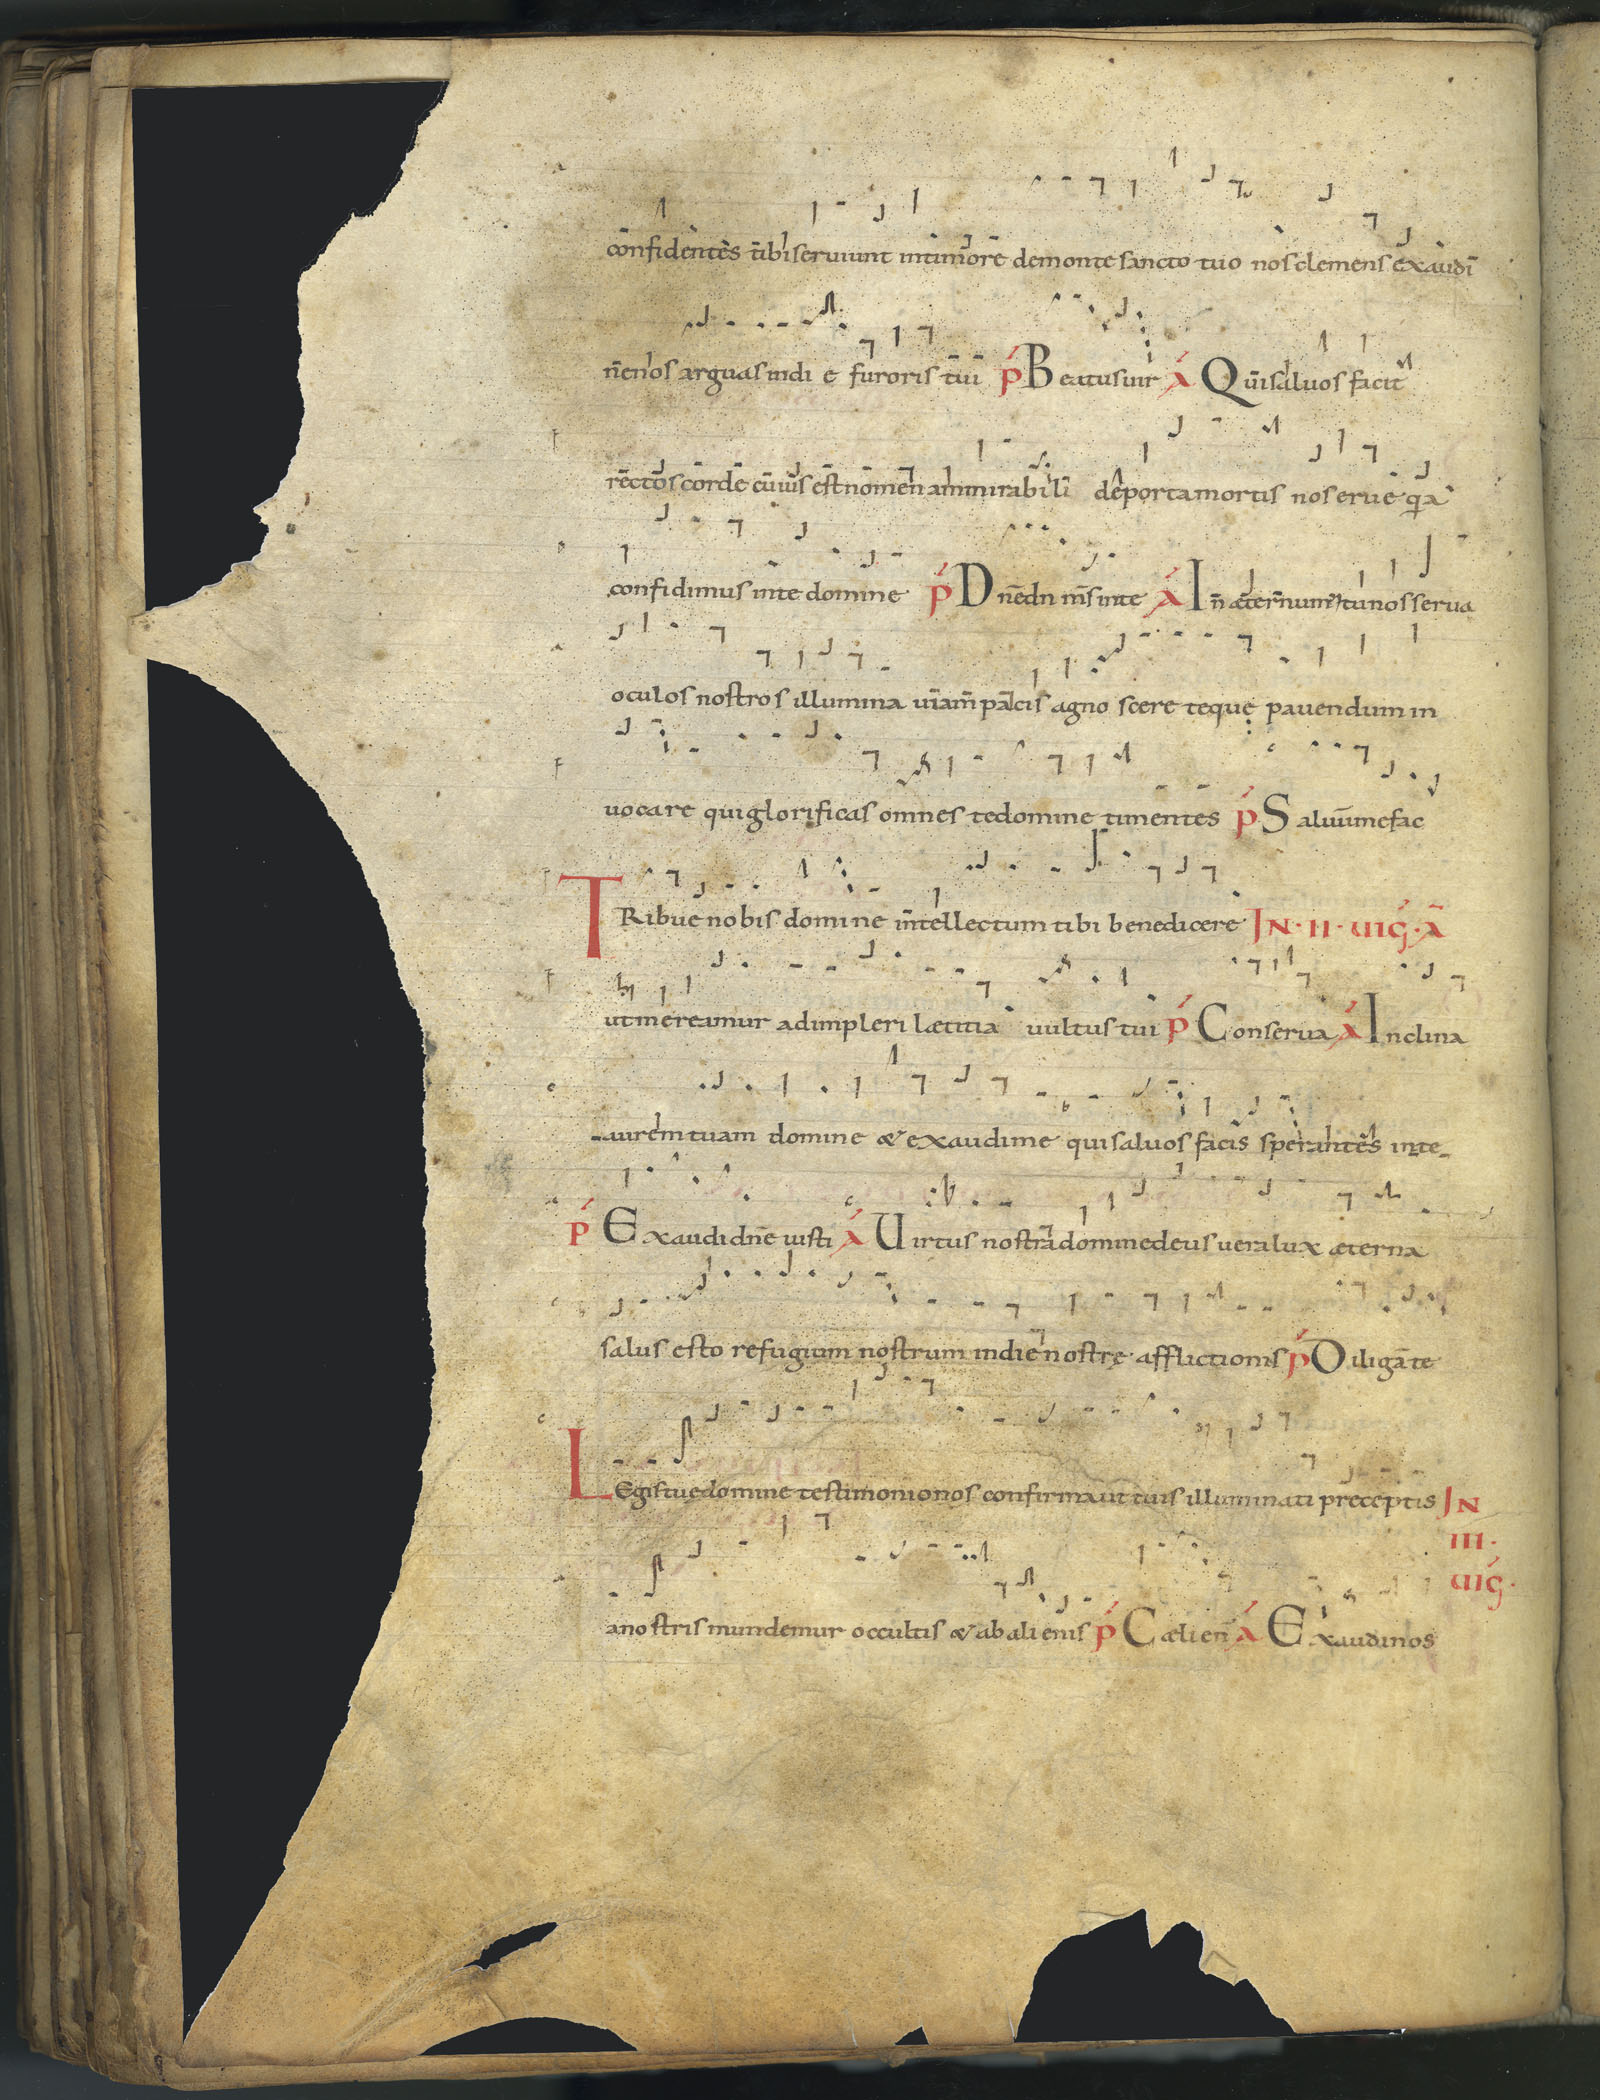 confidentes tibi seruiunt intimore demonte sancto tuo nos clemens exaudi
nenos arguas indi e furoris tui p Beatusuir A Quisaluos facit
rectos corde cuius est nomen ammirabili deporta mortis nos erue qa
confidimus inte domine p Dnedn ms inte A In æternum tunos serua
oculos nostros illumina uiam pacis agno scere teque pauendum in
uocare qui glorificas omnes tedomine timentes p Saluumefac
TRibue nobis domine intellectum tibi benedicere IN · II · uig · A
ut mereamur adimpleri lætitia uultus tui p Conserua A Inclina
aurem tuam domine & exaudime qui saluos facis sperantes inte
p Exaudi dne iusti A Uirtus nostra domine deus uera lux æterna
salus esto refugium nostrum indie nostrę afflictionis p Diligate
LEgistuę domine testimonio nos confirma ut tuis illuminati preceptis IN
III ·
uig ·
anostris mundemur occultis & abalienis p Cælien A Exaudinos